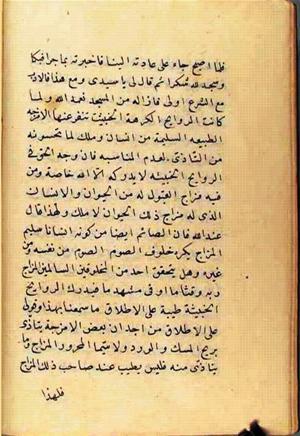 فلما اصبح جاء على عادته الينا فاخبرته بما جرا فبكا
وسجد لله شكرا ثم قال لى يا سيدى ومع هذا فالادب
مع الشرع اولى فازاله من المسجد فحمد الله ولما
كانت الروايح الكرهة الخبيثة تنفر عنها الامزجه
الطبيعه السليمة من انسان وملك لما تحسونه
من التاذى لعدم المناسبه فان وجه الحق فى
الروايح الخبيثه لا يدركه الا الله خاصة ومن
فيه مزاج القبول له من الحيوان والانسان
الذى له مزاج ذلك الحيوان لا ملك ولهذا قال
عند الله فان الصائم ايضا من كونه انسانا سليم
المزاج يكره خلوف الصوم الصوم من نفسه ومن
غيره وهل يتحقق احد من المخلوقين السالمين المزاج
ربه وقتا ما او فى مشهد ما فيدرك الروايح
الخبيثة طيبة على الاطلاق ما سمعنا بهذا وقولى
على الاطلاق من اجل ان بعض الامزجة يتاذى
بريح المسك والورد ولا سيما المحرور المزاج وما
يتاذى منه فليس بطيب عند صاحب ذلك المزاج
فلهذا